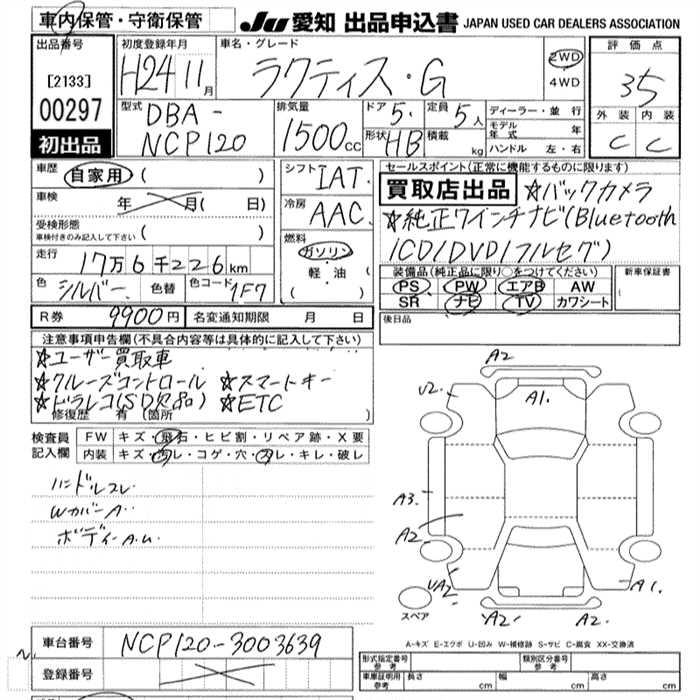 車内保管・守衛保管 JU 愛知 出品申込書 JAPAN USED CAR DEALERS ASSOCIATION
出品番号
[2133]
00297
初出品
初度登録年月
H24 11月
車名・グレード
ラクティス・G
2WD
4WD
評価点
3.5
外装 内装
C C
型式
DBA-
NCP120
排気量
1500cc
ドア 5
形状 HB
定員 5人
積載 kg
ディーラー・並行
モデル年式 年
ハンドル 左・右
車歴 自家用 ( )
車検 年 月( 日)
受検形態
車検付きのみ記入して下さい ( )
走行 17万6千226km
色 シルバー 色替 色コード 1F7
シフト IAT
冷房 AAC
燃料
ガソリン
軽・油
( )
セールスポイント(正常に機能するものに限ります)
買取店出品 ☆バックカメラ
☆純正ワインチナビ(Bluetooth
/CD/DVD/フルセグ)
装備品(純正品に限り○をつけてください)
PS PW エアB AW
SR ナビ TV カワシート
新車保証書
後日品
R券 9900円 名変通知期限 月 日
注意事項申告欄(不具合内容等は具体的に記入して下さい)
☆ユーザー買取車
☆クルーズコントロール ☆スマートキー
☆ドラレコ(SD欠品) ☆ETC
修復歴 有 (箇所 )
検査員
記入欄
FW キズ・飛石・ヒビ割・リペア跡・X要
内装 キズ・汚レ・コゲ・穴・スレ・キレ・破レ
ハンドルスレ
Wカバー A
ボディー A.U.
A2
U2.
A1.
A3.
A2
UA2
A1.
A2
A2.
スペア
A-キズ E-エクボ U-凹み W-補修跡 S-サビ C-腐食 XX-交換済
車台番号 NCP120-3003639
登録番号
形式指定番号
参考
類別区分番号
参考
車庫証明用
参考
長さ cm 幅 cm 高さ cm